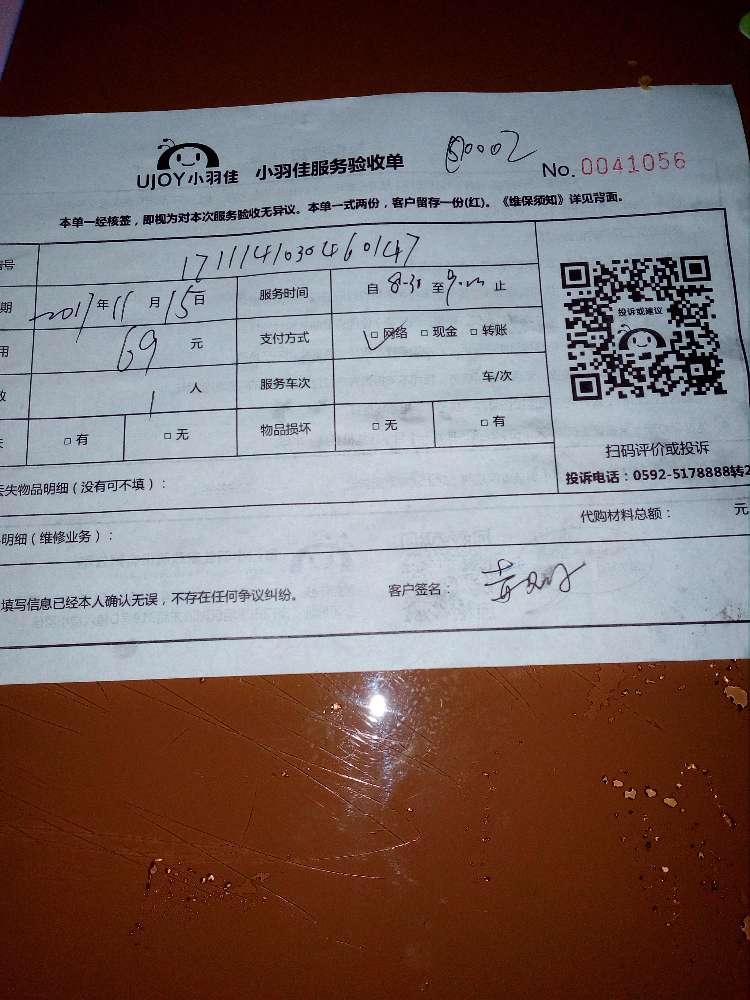 UJOY小羽佳 小羽佳服务验收单 80002 No. 0041056
本单一经核签，即视为对本次服务验收无异议。本单一式两份，客户留存一份(红)。《维保须知》详见背面。
号 17111410304660147
期 2017年11月15日 服务时间 自 8:30 至 9: 止
用 69 元 支付方式 □网络 □现金 □转账
数 1 人 服务车次 车/次
失 □有 □无 物品损坏 □无 □有
投诉或建议
扫码评价或投诉
投诉电话：0592-5178888转2
丢失物品明细（没有可不填）：
明细（维修业务）： 代购材料总额： 元
填写信息已经本人确认无误，不存在任何争议纠纷。 客户签名：